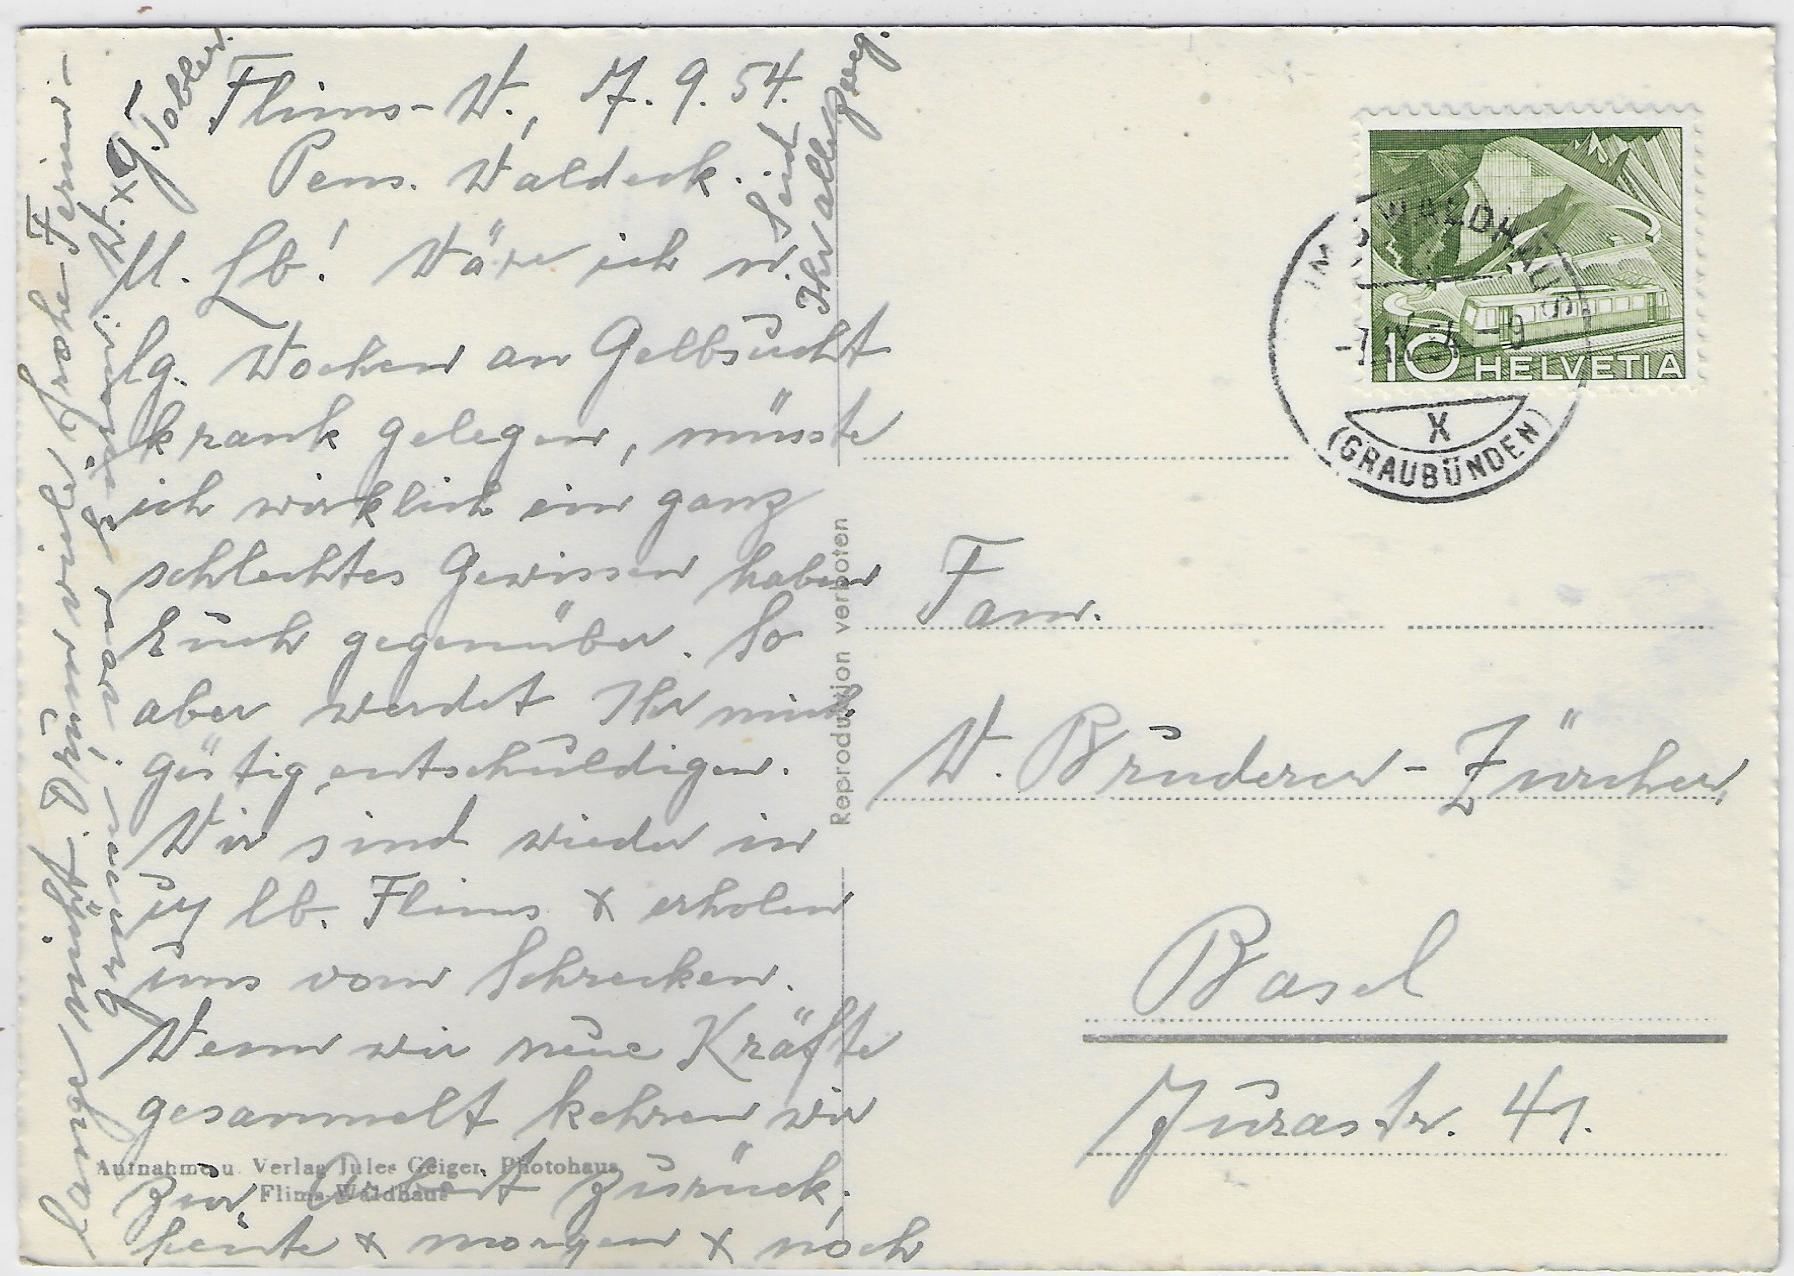 Flims-W., 7.9.54.
Pens. Waldeck.
M. Lb! Wäre ich n.
lg. Wochen an Gelbsucht
krank gelegen, müsste
ich wirklich ein ganz
schlechtes Gewissen haben
Euch gegenüber. So
aber werdet Ihr mich
gütig entschuldigen.
Wir sind wieder in
lb. Flims & erholen
uns vom Schrecken.
Wenn wir neue Kräfte
gesammelt kehren wir
zur Arbeit zurück,
heute & morgen & noch
lange nicht. Wünschen
Frohe Ferien-
W. & G. Tobler.
Seid
Ihr alle
Reproduktion verboten
Aufnahme u. Verlag Jules Geiger, Photohaus
Flims Waldhaus
10 HELVETIA
WALDHAUS
(GRAUBÜNDEN)
Fam.
W. Bruderer-Zürcher,
Basel
Jurastr. 41.